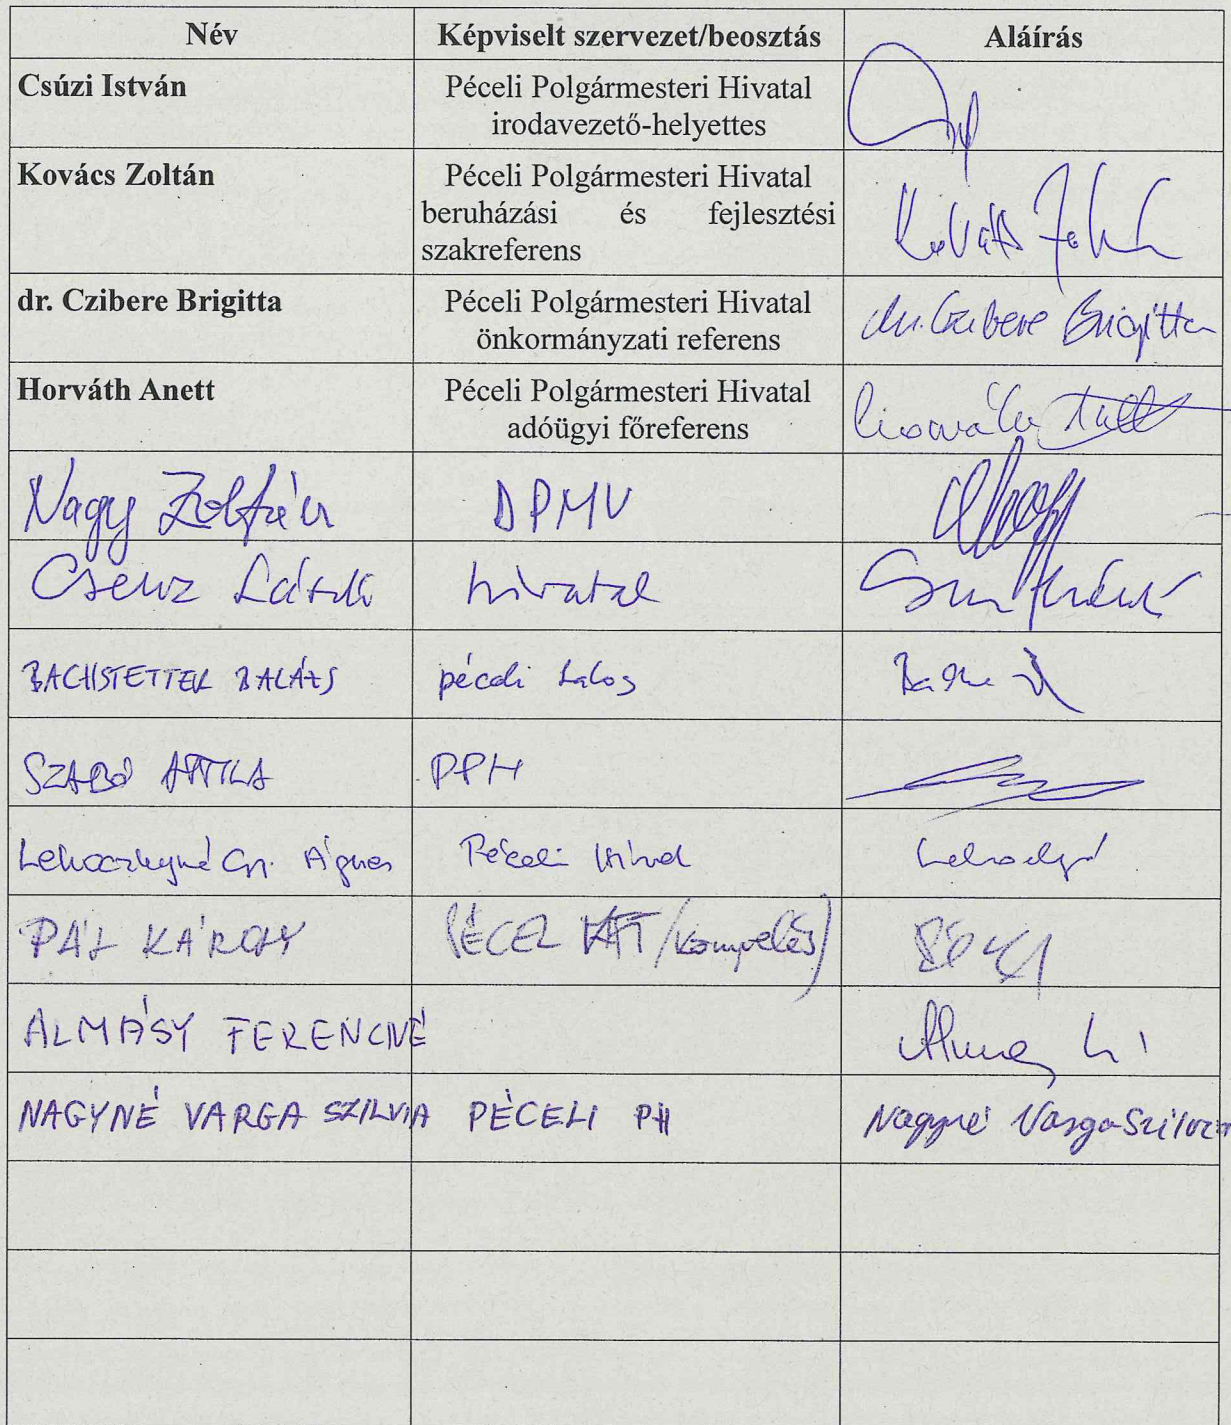 Név Képviselt szervezet/beosztás Aláírás
Csúzi István Péceli Polgármesteri Hivatal
irodavezető-helyettes
Kovács Zoltán Péceli Polgármesteri Hivatal
beruházási és fejlesztési
szakreferens
Kovács Zoltán
dr. Czibere Brigitta Péceli Polgármesteri Hivatal
önkormányzati referens
dr. Czibere Brigitta
Horváth Anett Péceli Polgármesteri Hivatal
adóügyi főreferens
Horváth Anett
Nagy Zoltán DPMV
László hivatal
BACHSTETTER BALÁZS péceli lakos
SZABÓ ATTILA PPH
Lehoczkyné Gy. Ágnes Péceli Hírnök
PÁL KÁROLY PÉCEL /könyvelés/
ALMÁSY FERENCNÉ
NAGYNÉ VARGA SZILVIA PÉCELI PH Nagyné Varga Szilvia